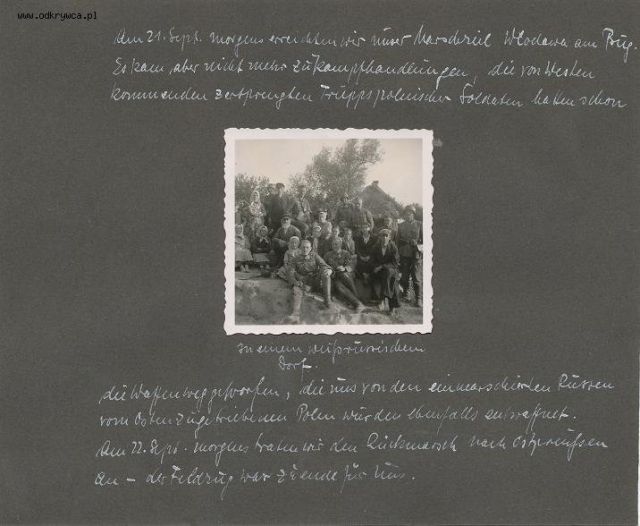 www.odkrywca.pl
Am 21. Sept. morgens erreichten wir unser Marschziel Wlodawa am Bug.
Es kam aber nicht mehr zu Kampfhandlungen, die von Westen
kommenden zersprengten Trupps polnischer Soldaten hatten schon
In einem weißrussischen
Dorf.
die Waffen weggeworfen, die uns von den einmarschierten Russen
vom Osten zugetriebenen Polen wurden ebenfalls entwaffnet.
Am 22. Sept. morgens traten wir den Rückmarsch nach Ostpreußen
an – der Feldzug war zuende für uns.